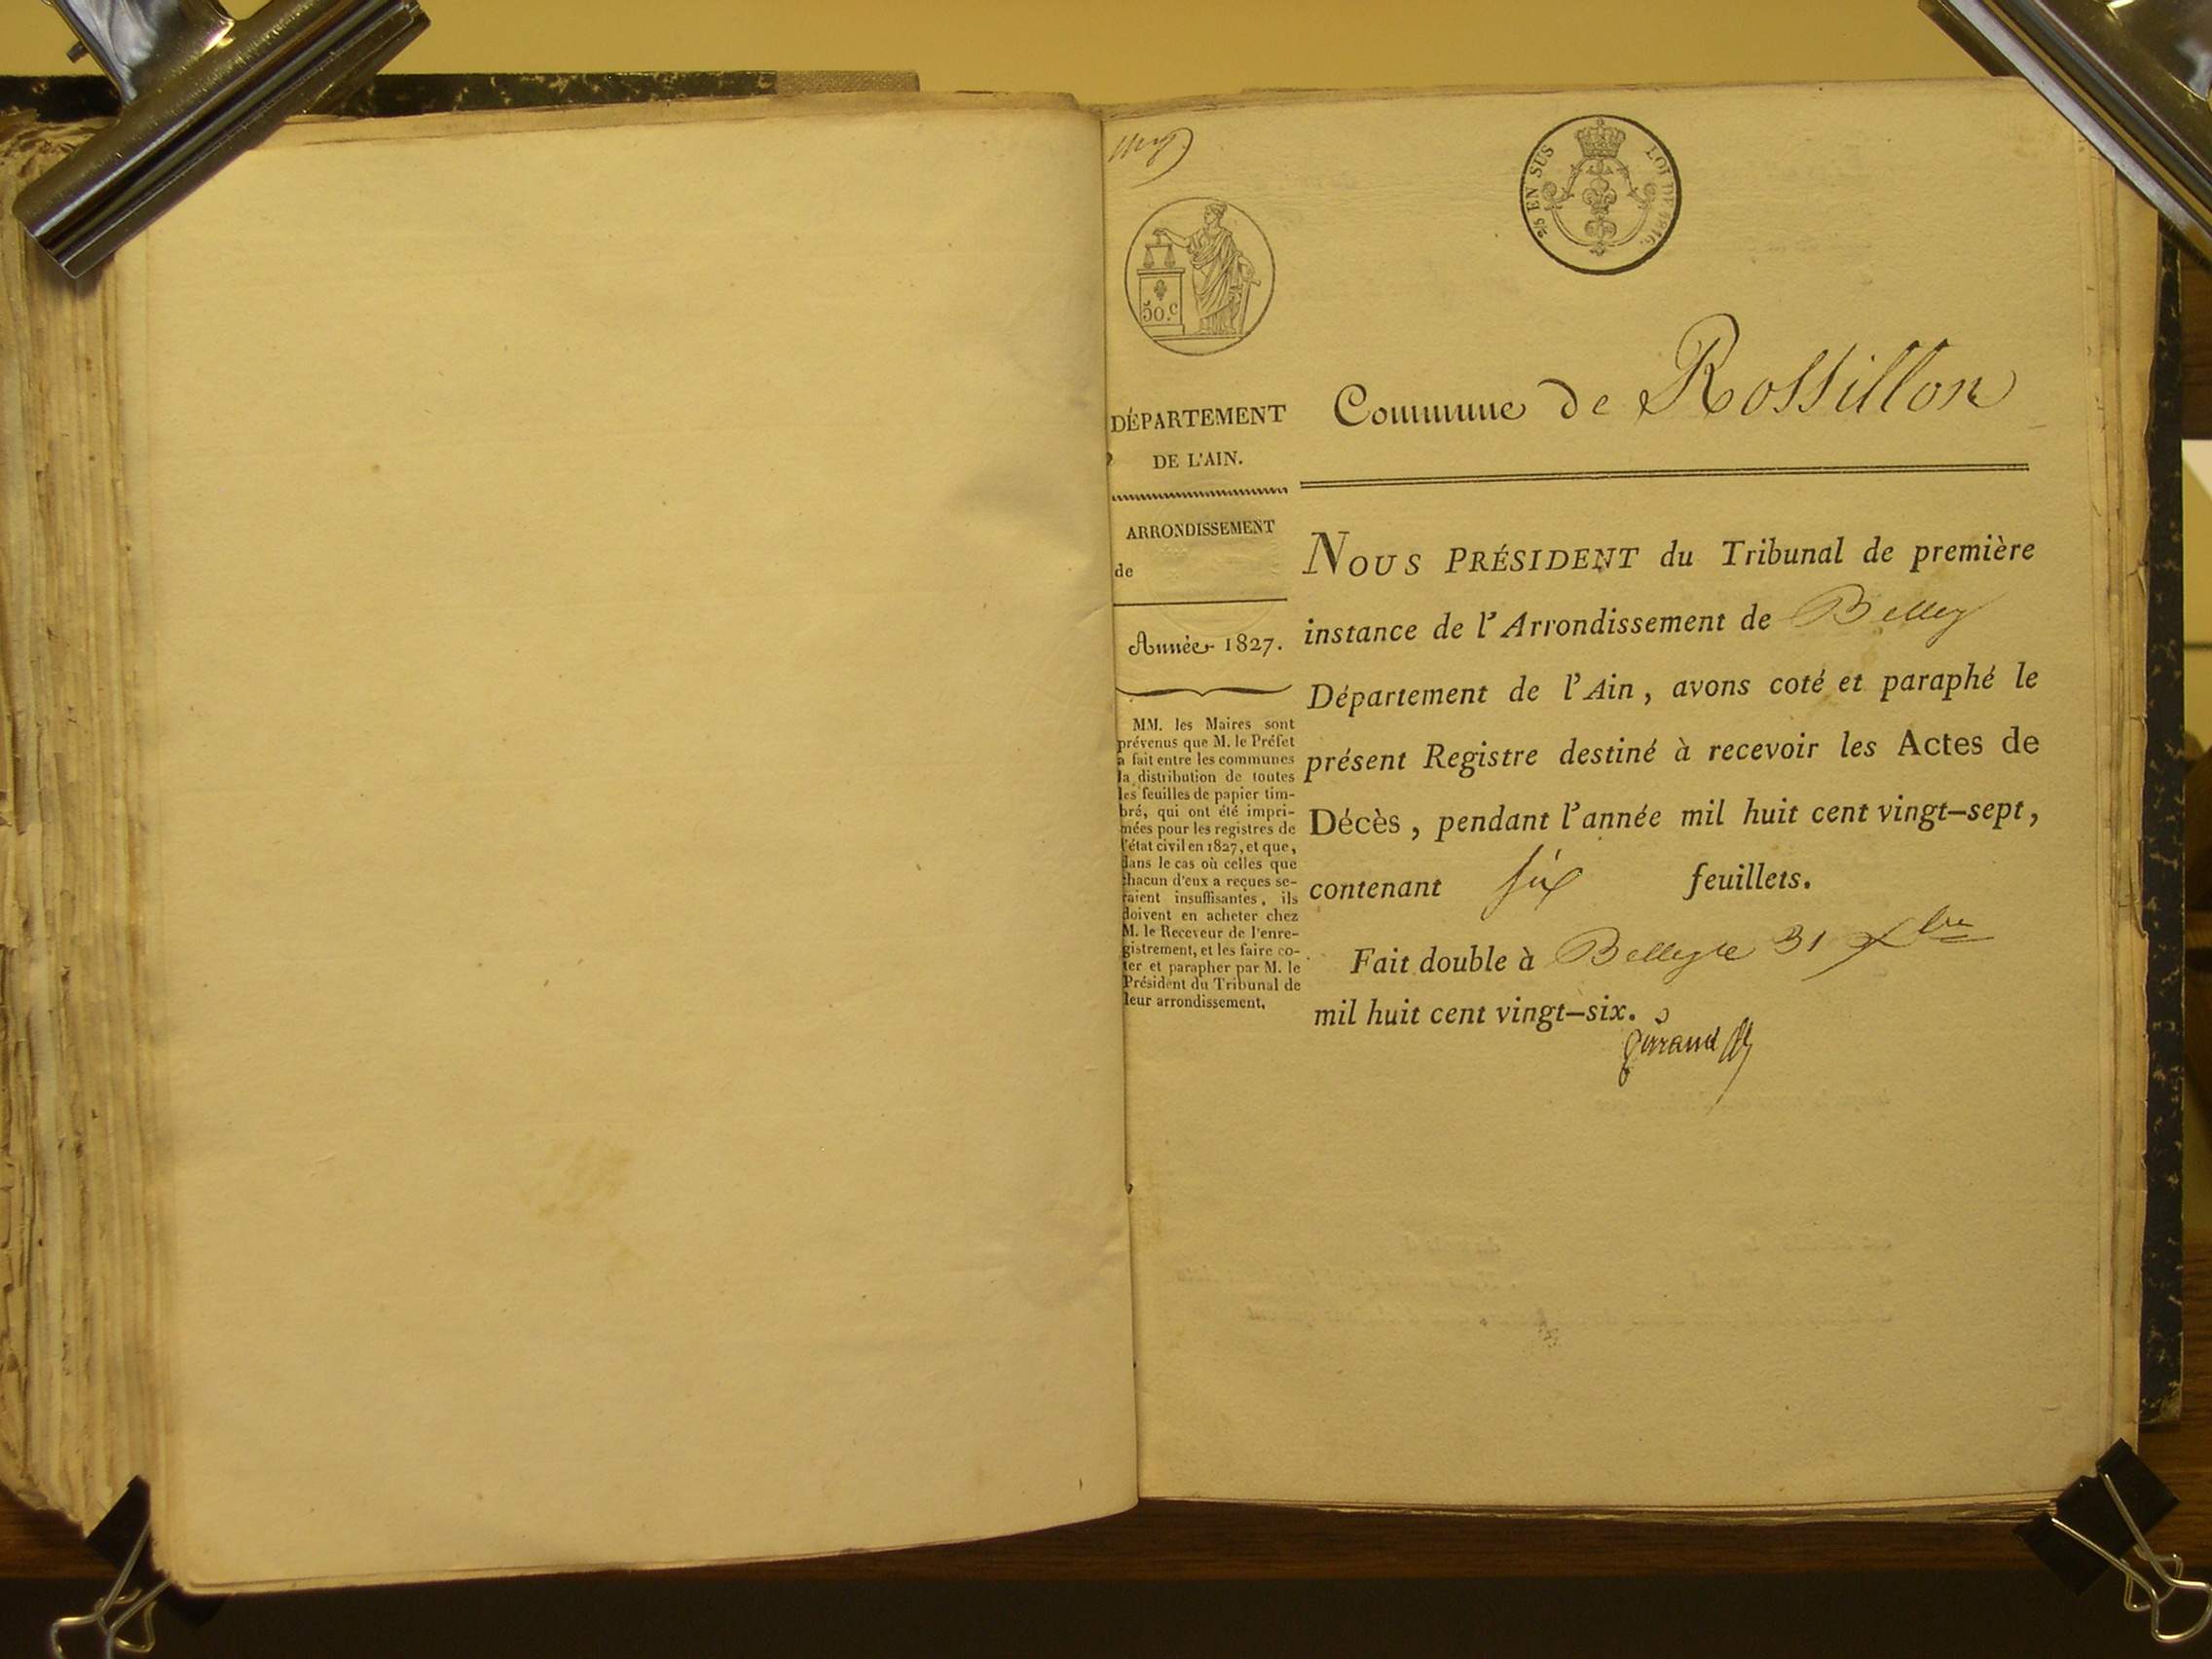 25 EN SUS
LOI DE 1816.
50.c
Commune de Rossillon
DÉPARTEMENT
DE L'AIN.
ARRONDISSEMENT
de
Année 1827.
MM. les Maires sont
prévenus que M. le Préfet
a fait entre les communes
la distribution de toutes
les feuilles de papier tim-
bré, qui ont été impri-
mées pour les registres de
l'état civil en 1827, et que,
dans le cas où celles que
chacun d'eux a reçues se-
raient insuffisantes, ils
doivent en acheter chez
M. le Receveur de l'enre-
gistrement, et les faire co-
ter et parapher par M. le
Président du Tribunal de
leur arrondissement.
NOUS PRÉSIDENT du Tribunal de première
instance de l'Arrondissement de Belley
Département de l'Ain, avons coté et paraphé le
présent Registre destiné à recevoir les Actes de
Décès, pendant l'année mil huit cent vingt-sept,
contenant six feuillets.
Fait double à Belley le 31 Xbre
mil huit cent vingt-six.